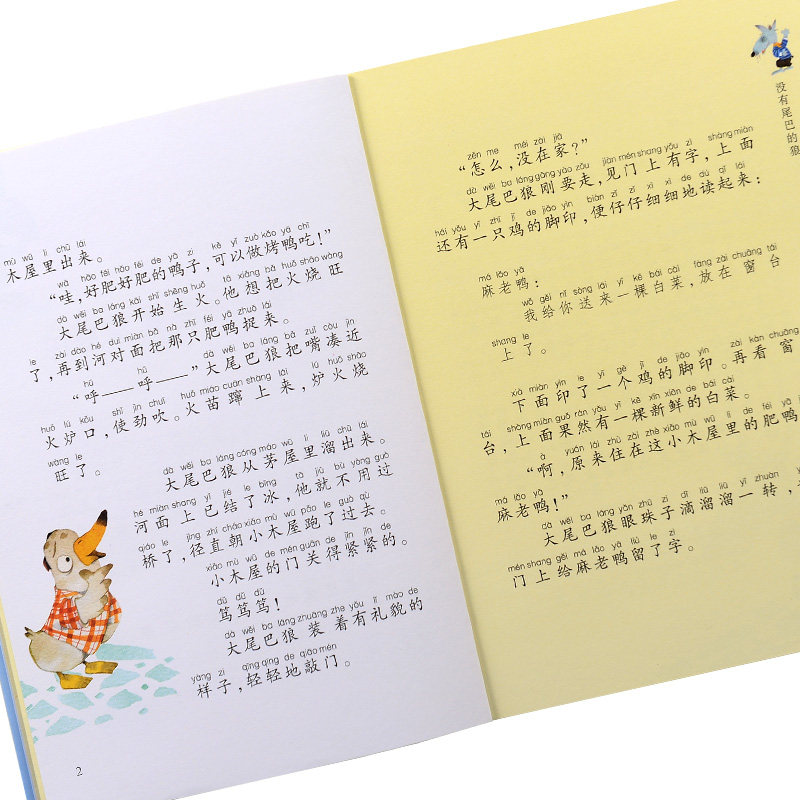 mù wū lǐ chū lái
木屋里出来。
wā hǎo féi hǎo féi de yā zi kě yǐ zuò kǎo yā chī
“哇,好肥好肥的鸭子,可以做烤鸭吃!”
dà wěi ba láng kāi shǐ shēng huǒ tā xiǎng bǎ huǒ shāo wàng
大尾巴狼开始生火。他想把火烧旺
le zài dào hé duì miàn bǎ nà zhī féi yā zhuō lái
了,再到河对面把那只肥鸭捉来。
hū hū dà wěi ba láng bǎ zuǐ còu jìn
“呼——呼——”大尾巴狼把嘴凑近
huǒ lú kǒu shǐ jìn chuī huǒ miáo cuān shàng lái lú huǒ shāo
火炉口,使劲吹。火苗蹿上来,炉火烧
wàng le
旺了。
dà wěi ba láng cóng máo wū lǐ liū chū lái
大尾巴狼从茅屋里溜出来。
hé miàn shang yǐ jié le bīng tā jiù bú yòng guò
河面上已结了冰,他就不用过
qiáo le jìng zhí cháo xiǎo mù wū pǎo le guò qù
桥了,径直朝小木屋跑了过去。
xiǎo mù wū de mén guān de jǐn jǐn de
小木屋的门关得紧紧的。
dǔ dǔ dǔ
笃笃笃!
dà wěi ba láng zhuāng zhe yǒu lǐ mào de
大尾巴狼装着有礼貌的
yàng zi qīng qīng de qiāo mén
样子,轻轻地敲门。
2
没有尾巴的狼
zěn me méi zài jiā
“怎么,没在家?”
dà wěi ba láng gāng yào zǒu jiàn mén shang yǒu zì shàng miàn
大尾巴狼刚要走,见门上有字,上面
hái yǒu yì zhī jī de jiǎo yìn biàn zǐ zǐ xì xì de dú qǐ lái
还有一只鸡的脚印,便仔仔细细地读起来:
má lǎo yā
麻老鸭:
wǒ gěi nǐ sòng lái yì kē bái cài fàng zài chuāng tái
我给你送来一棵白菜,放在窗台
shang le
上了。
xià miàn yìn le yí gè jī de jiǎo yìn zài kàn chuāng
下面印了一个鸡的脚印。再看窗
tái shàng miàn guǒ rán yǒu yì kē xīn xiān de bái cài
台,上面果然有一棵新鲜的白菜。
à yuán lái zhù zài zhè xiǎo mù wū lǐ de féi yā jiào
“啊,原来住在这小木屋里的肥鸭
má lǎo yā
麻老鸭!”
dà wěi ba láng yǎn zhū zi dī liū liū yí zhuàn
大尾巴狼眼珠子滴溜溜一转,
mén shang gěi má lǎo yā liú le zì
门上给麻老鸭留了字。